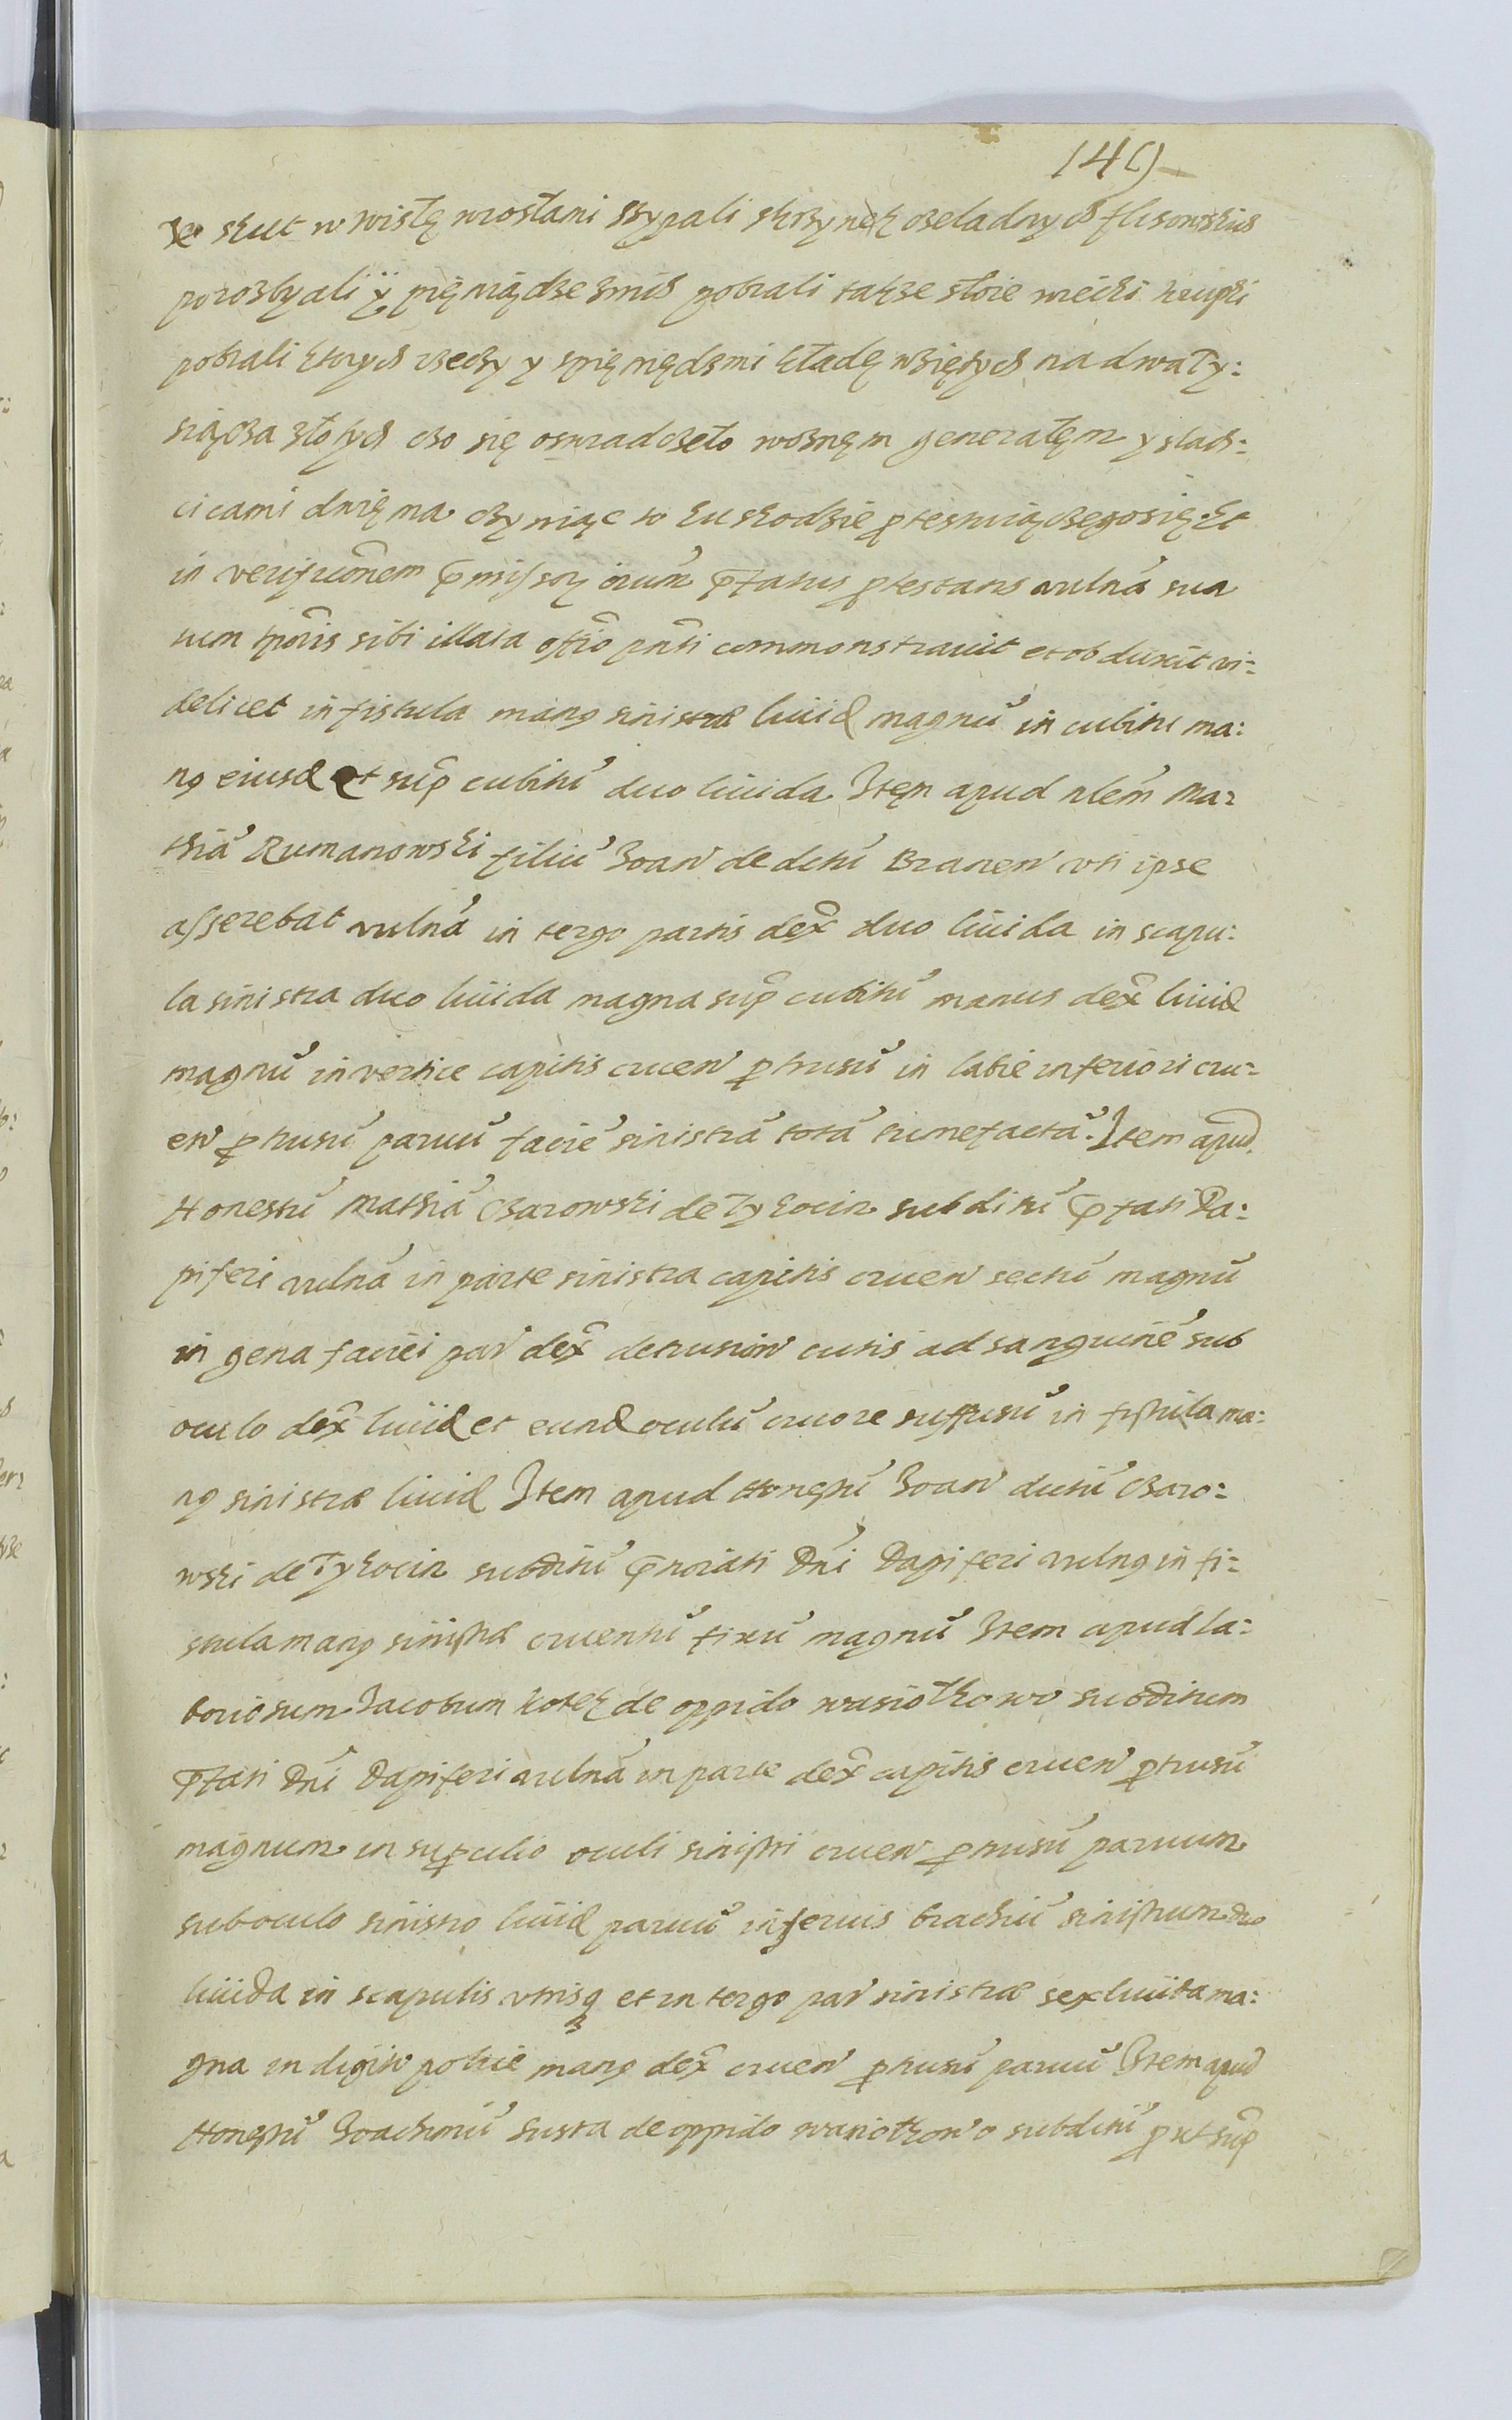 140
ze skut w wislę wrosłani sypali skrzynek czeladnych flisowskich
porozbyali ÿ pięniądze znich pobrali także słoie wiecki krupki
pobrali ktorych rzeczy y spięniędzmi kładę wziętych na dwa ty:
siącza złotych czo się oswiadczeło woznęm generałęm y slach:
cicami dwięma czyniąc to ku skodzie ꝓtestuiączegosię. Et
in verificõnem p̄missorꝝ oĩum p̄fatus ꝓtestans vulna᷃ sua
tum hoĩs sibi illata offiõ pñti commonstravit et obduxit vi:
delicet in fistula manꝯ sinistræ livid magnu᷃ in cubitu ma:
nꝯ eiusd et sup̃ cubitu᷃ duo livida Item apud nlem̃ Ma:
thia᷃ Rumanowski filiu᷃ Joan᷃ de dctu᷃ Branen᷃ vti ipse
asserebat vulna᷃ in tergo partis dex̃ duo livida in scapu:
la sinistra duo livida magna sup̃ cubitu᷃ manus dex̃ livid
magnu᷃ in vertice capitis cruen᷃ ꝑtusu᷃ in labie inferiori cru:
en᷃ ꝑtusu᷃ parvu᷃ facie᷃ sinistra᷃ tota᷃ tumefacta᷃. Item apud
Honestu᷃ Mathia᷃ Czarowski de Tykocin subditu᷃ p̄fati Da:
piferi vulna᷃ in parte sinistra capitis cruen᷃ sectu᷃ magnu᷃
in gena faciei par᷃ dex̃ detrusion᷃ cutis ad sanguine᷃ sub
oculo dex̃ livid et eund oculu᷃ cruore suffusu᷃ in fistula ma:
nꝯ sinistræ livid Item apud Honestu᷃ Joan᷃ dictu᷃ Czaro:
wski de Tykocin subditu᷃ p̄noiati Dni᷃ Dapiferi vulnꝯ in fi:
stula manꝯ sinistræ cruentu᷃ fixu᷃ magnu᷃ Item apud la:
boriosum Jacobum kotek de oppido wasiołkowo subditum
p̄fati Dni᷃ Dapiferi vulna᷃ in parte dex̃ capitis cruen᷃ ꝑtusu᷃
magnum in suꝑcilio oculi sinistri cruen᷃ ꝑtusu᷃ parvum
sub oculo sinistro livid parvu᷃ inferius brachiu᷃ sinistrum duo
livida in scapulis vtrisqꝫ et in tergo par᷃ sinistræ sex livida ma:
gna in digito police manꝯ dex̃ cruen᷃ ꝑtusu᷃ parvu᷃ Item apud
Honestu᷃ Joachimu᷃ Susta de oppido wasiołkowo subditu᷃ ꝓut sup̃